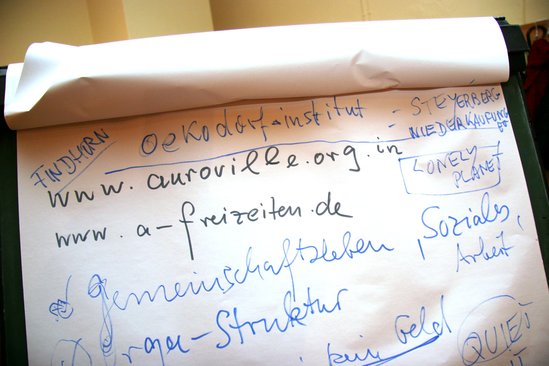 FINDHORN
oekodorf-institut
- STEYERBERG
- NIEDERKAUFUNGEN
www.auroville.org.in
LONELY
PLANET
www.a-freizeiten.de
Gemeinschaftsleben, Soziales,
Arbeit
-Struktur
kein Geld
QUIET